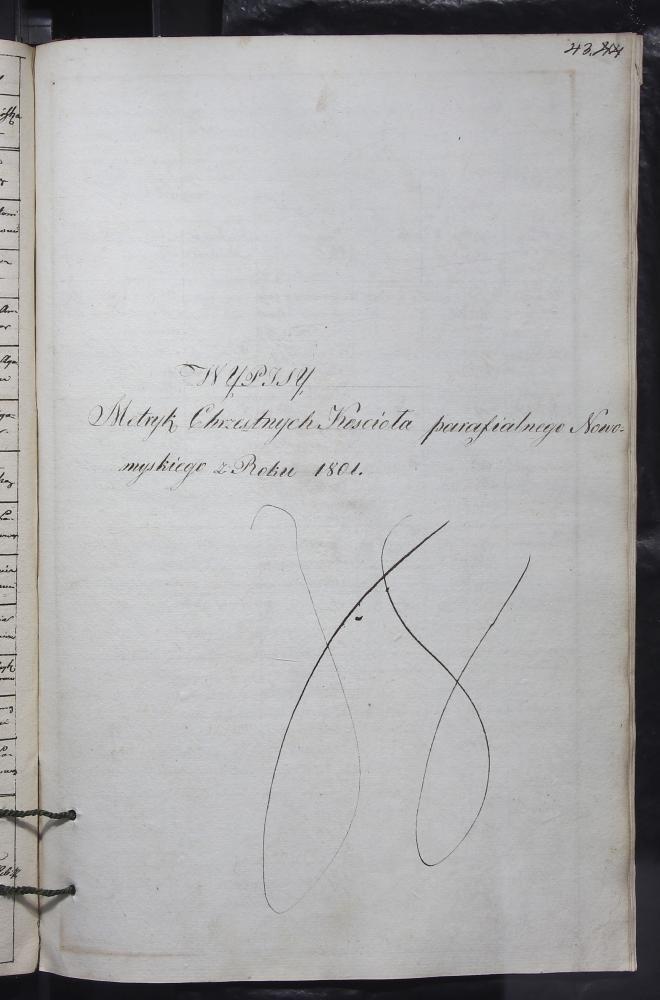 43.
WYPISY
Metryk Chrzestnych Kościoła parafialnego Nowo-
myskiego z Roku 1801.